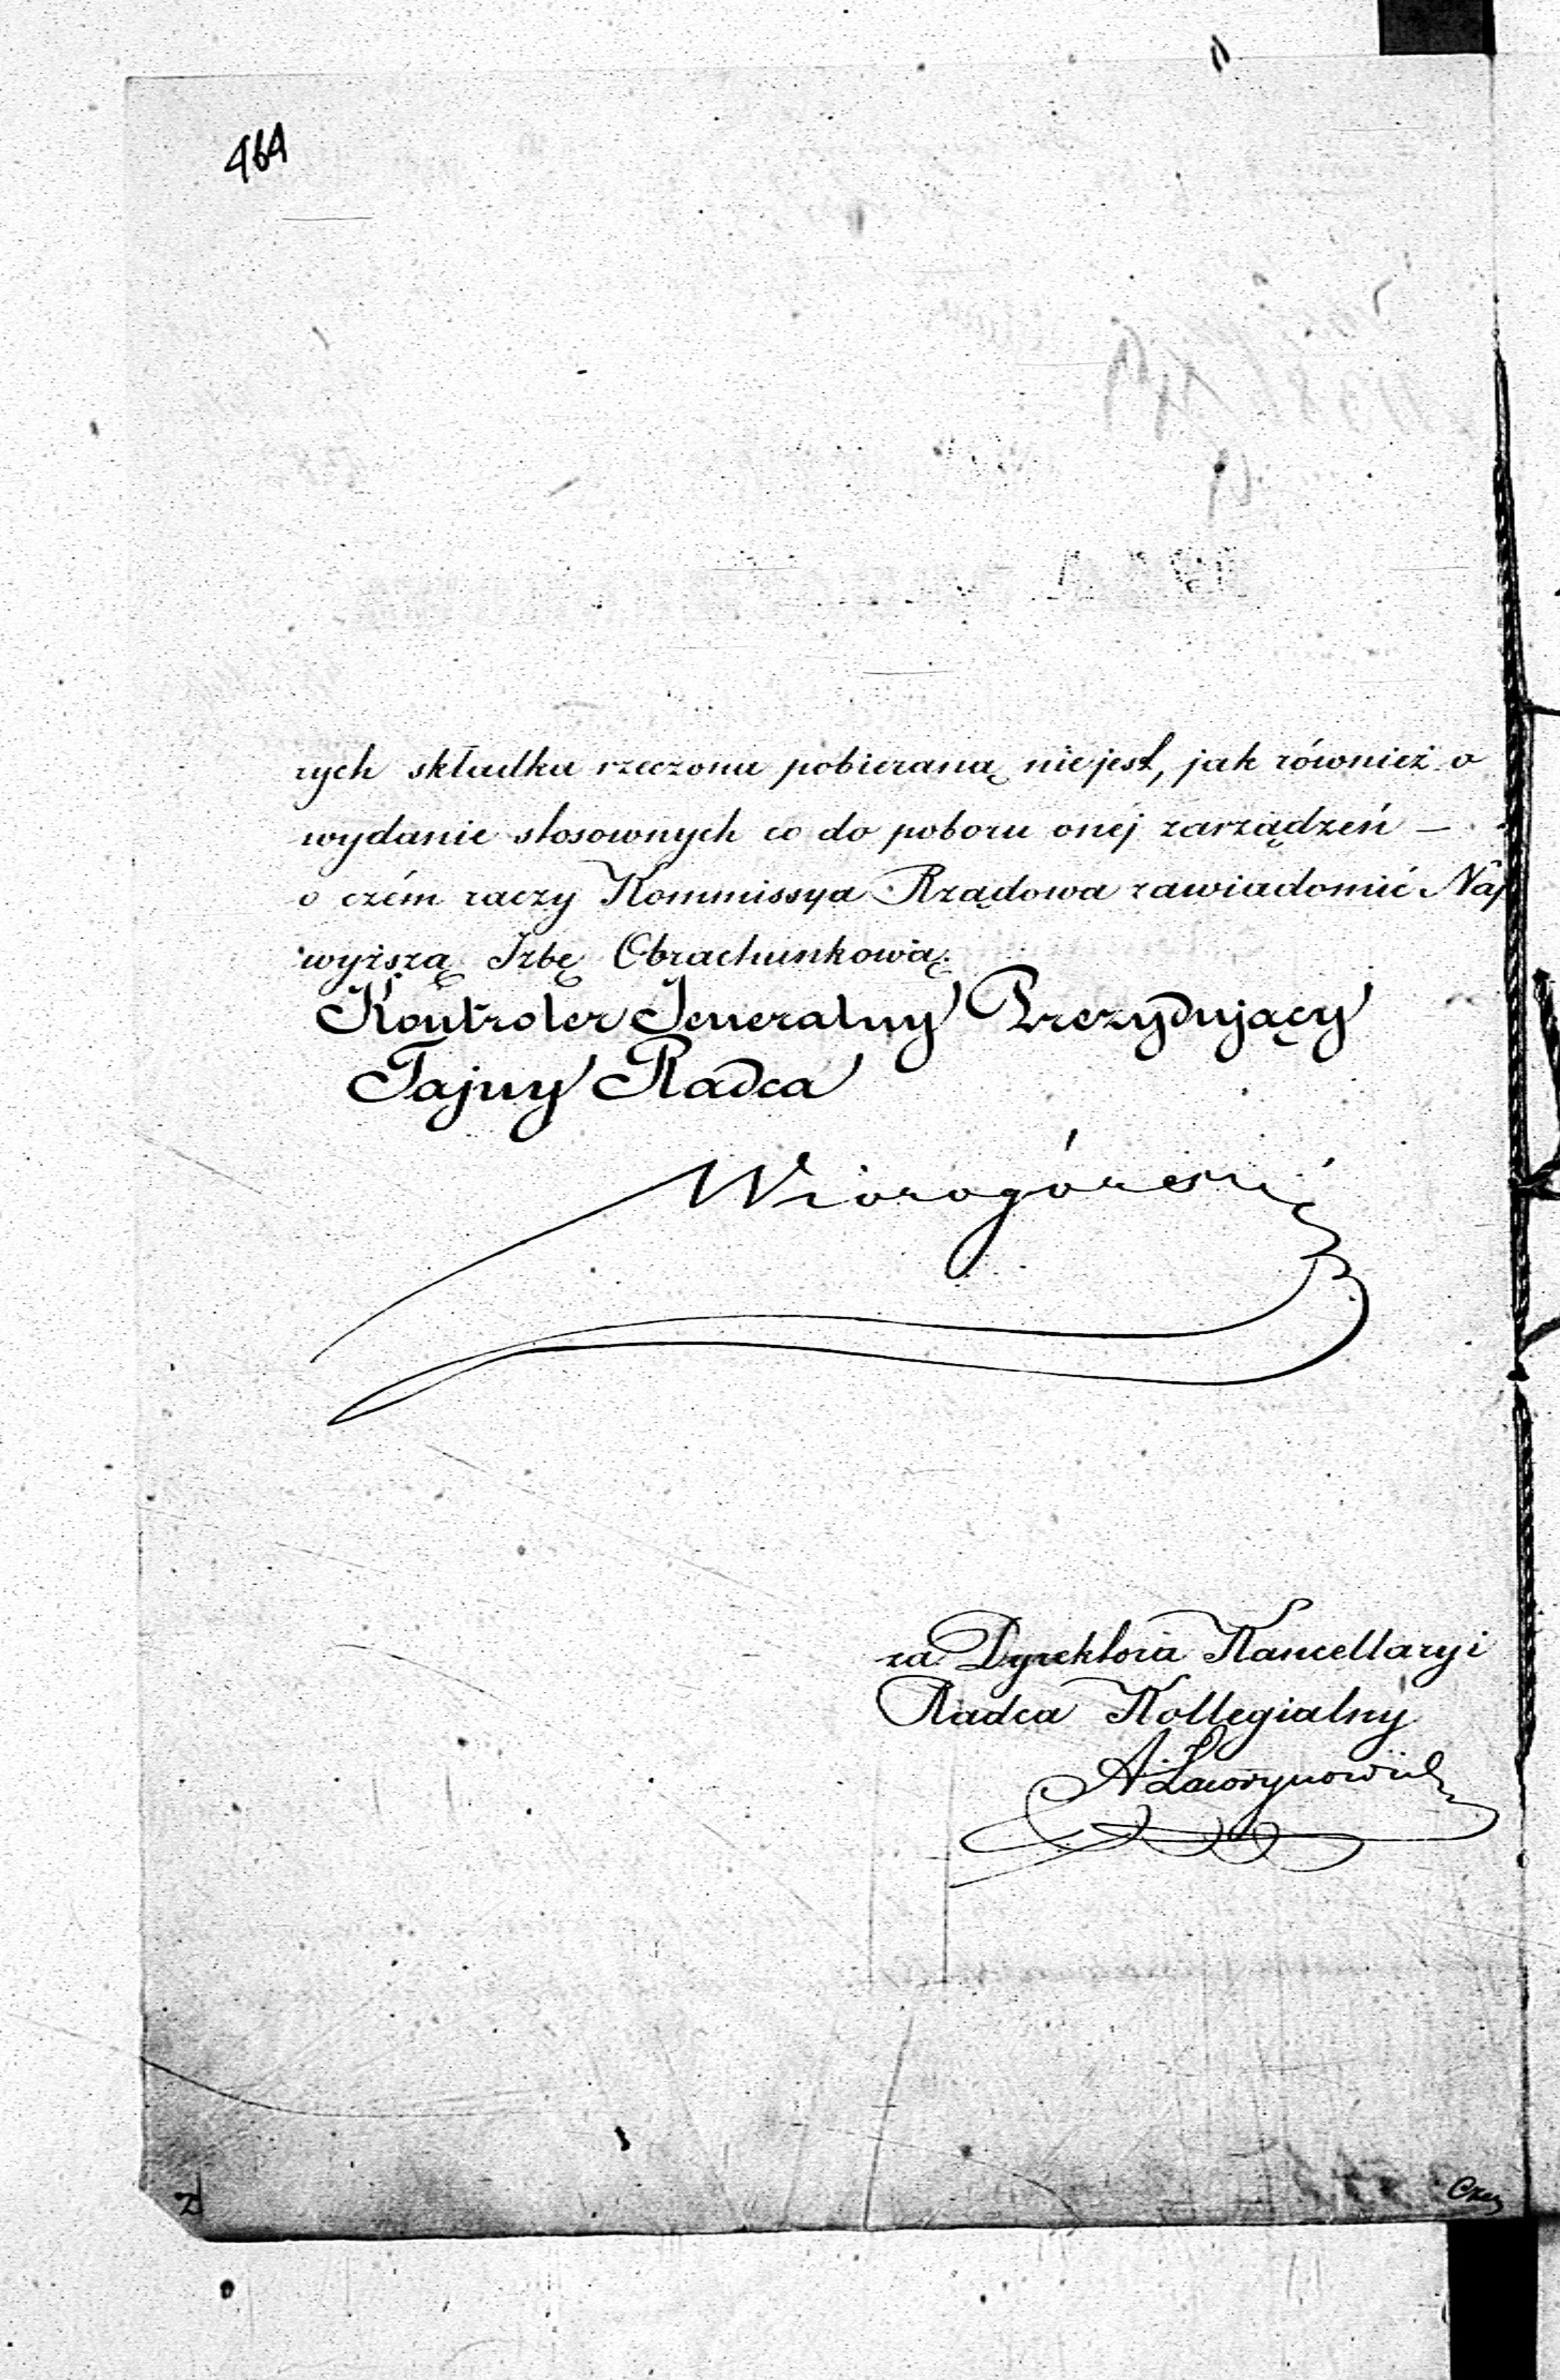 464
rych składka rzeczona pobieraną niejest, jak również o
wydanie stosownych co do poboru onéj zarządzeń —
o czém raczy Kommissya Rządowa zawiadomić Naj
wyższą Izbę Obrachunkową.
Kontroler Jeneralny Prezydujący
Tajny Radca
za Dyrektora Kancellaryi
Radca Kollegialny
A. Ławrynowicz